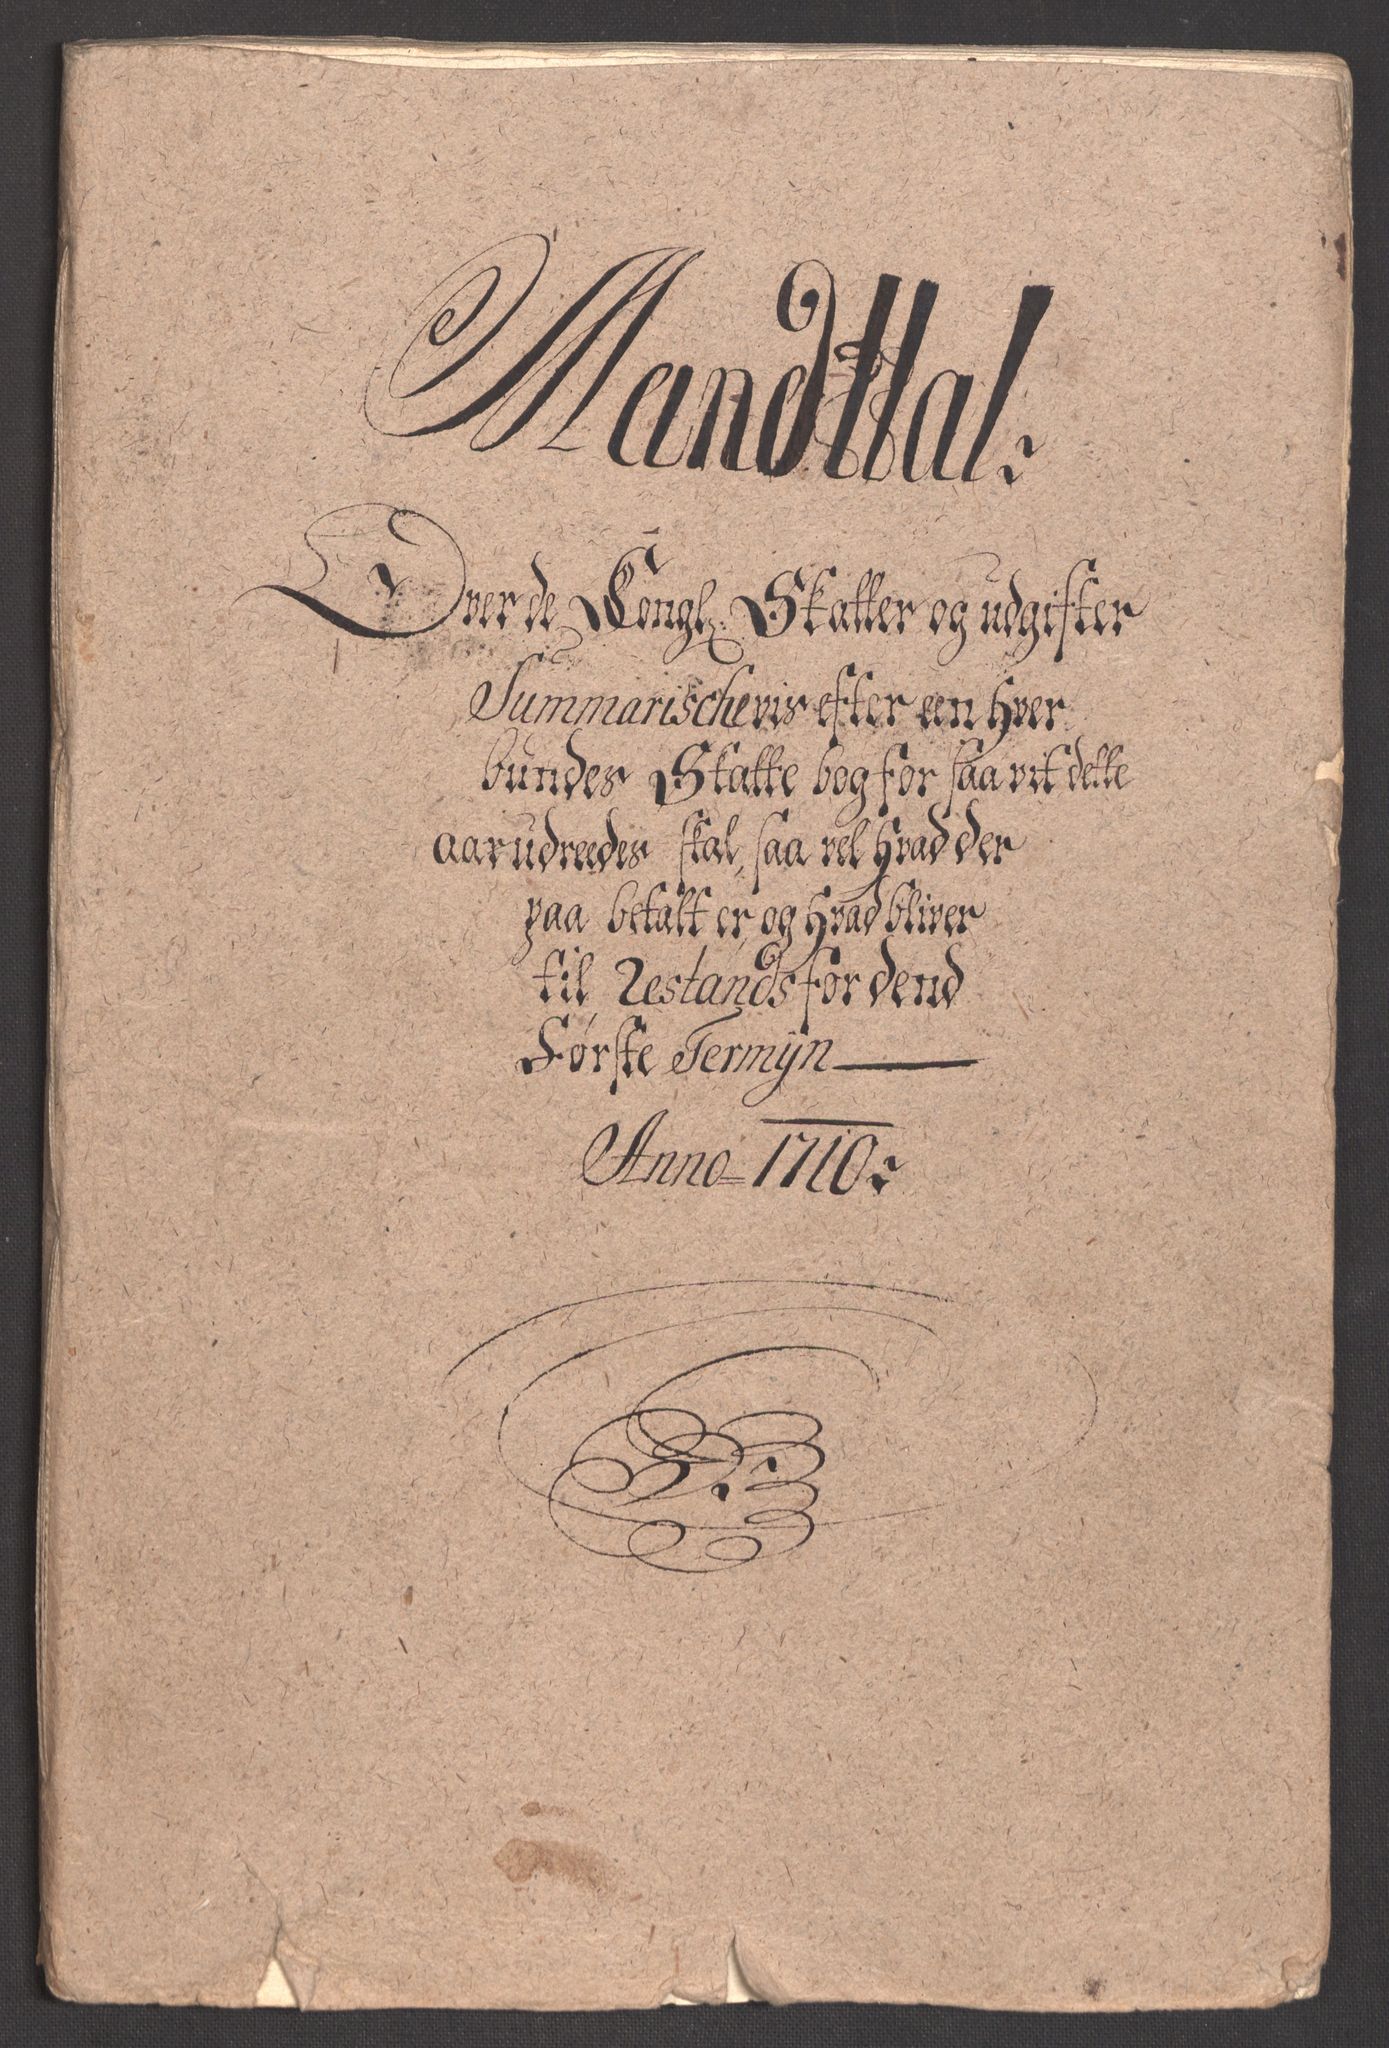 Mandttal:
Over de Congl: Skatter og udgifter
Summarische vis efter een hver
bundes Skatte bog for saa vit dette
aar udreedes skal, saa vel hvad der
paa betalt er, og hvad bliver
til Restands for dend
Første Termÿn
Anno = 1710: